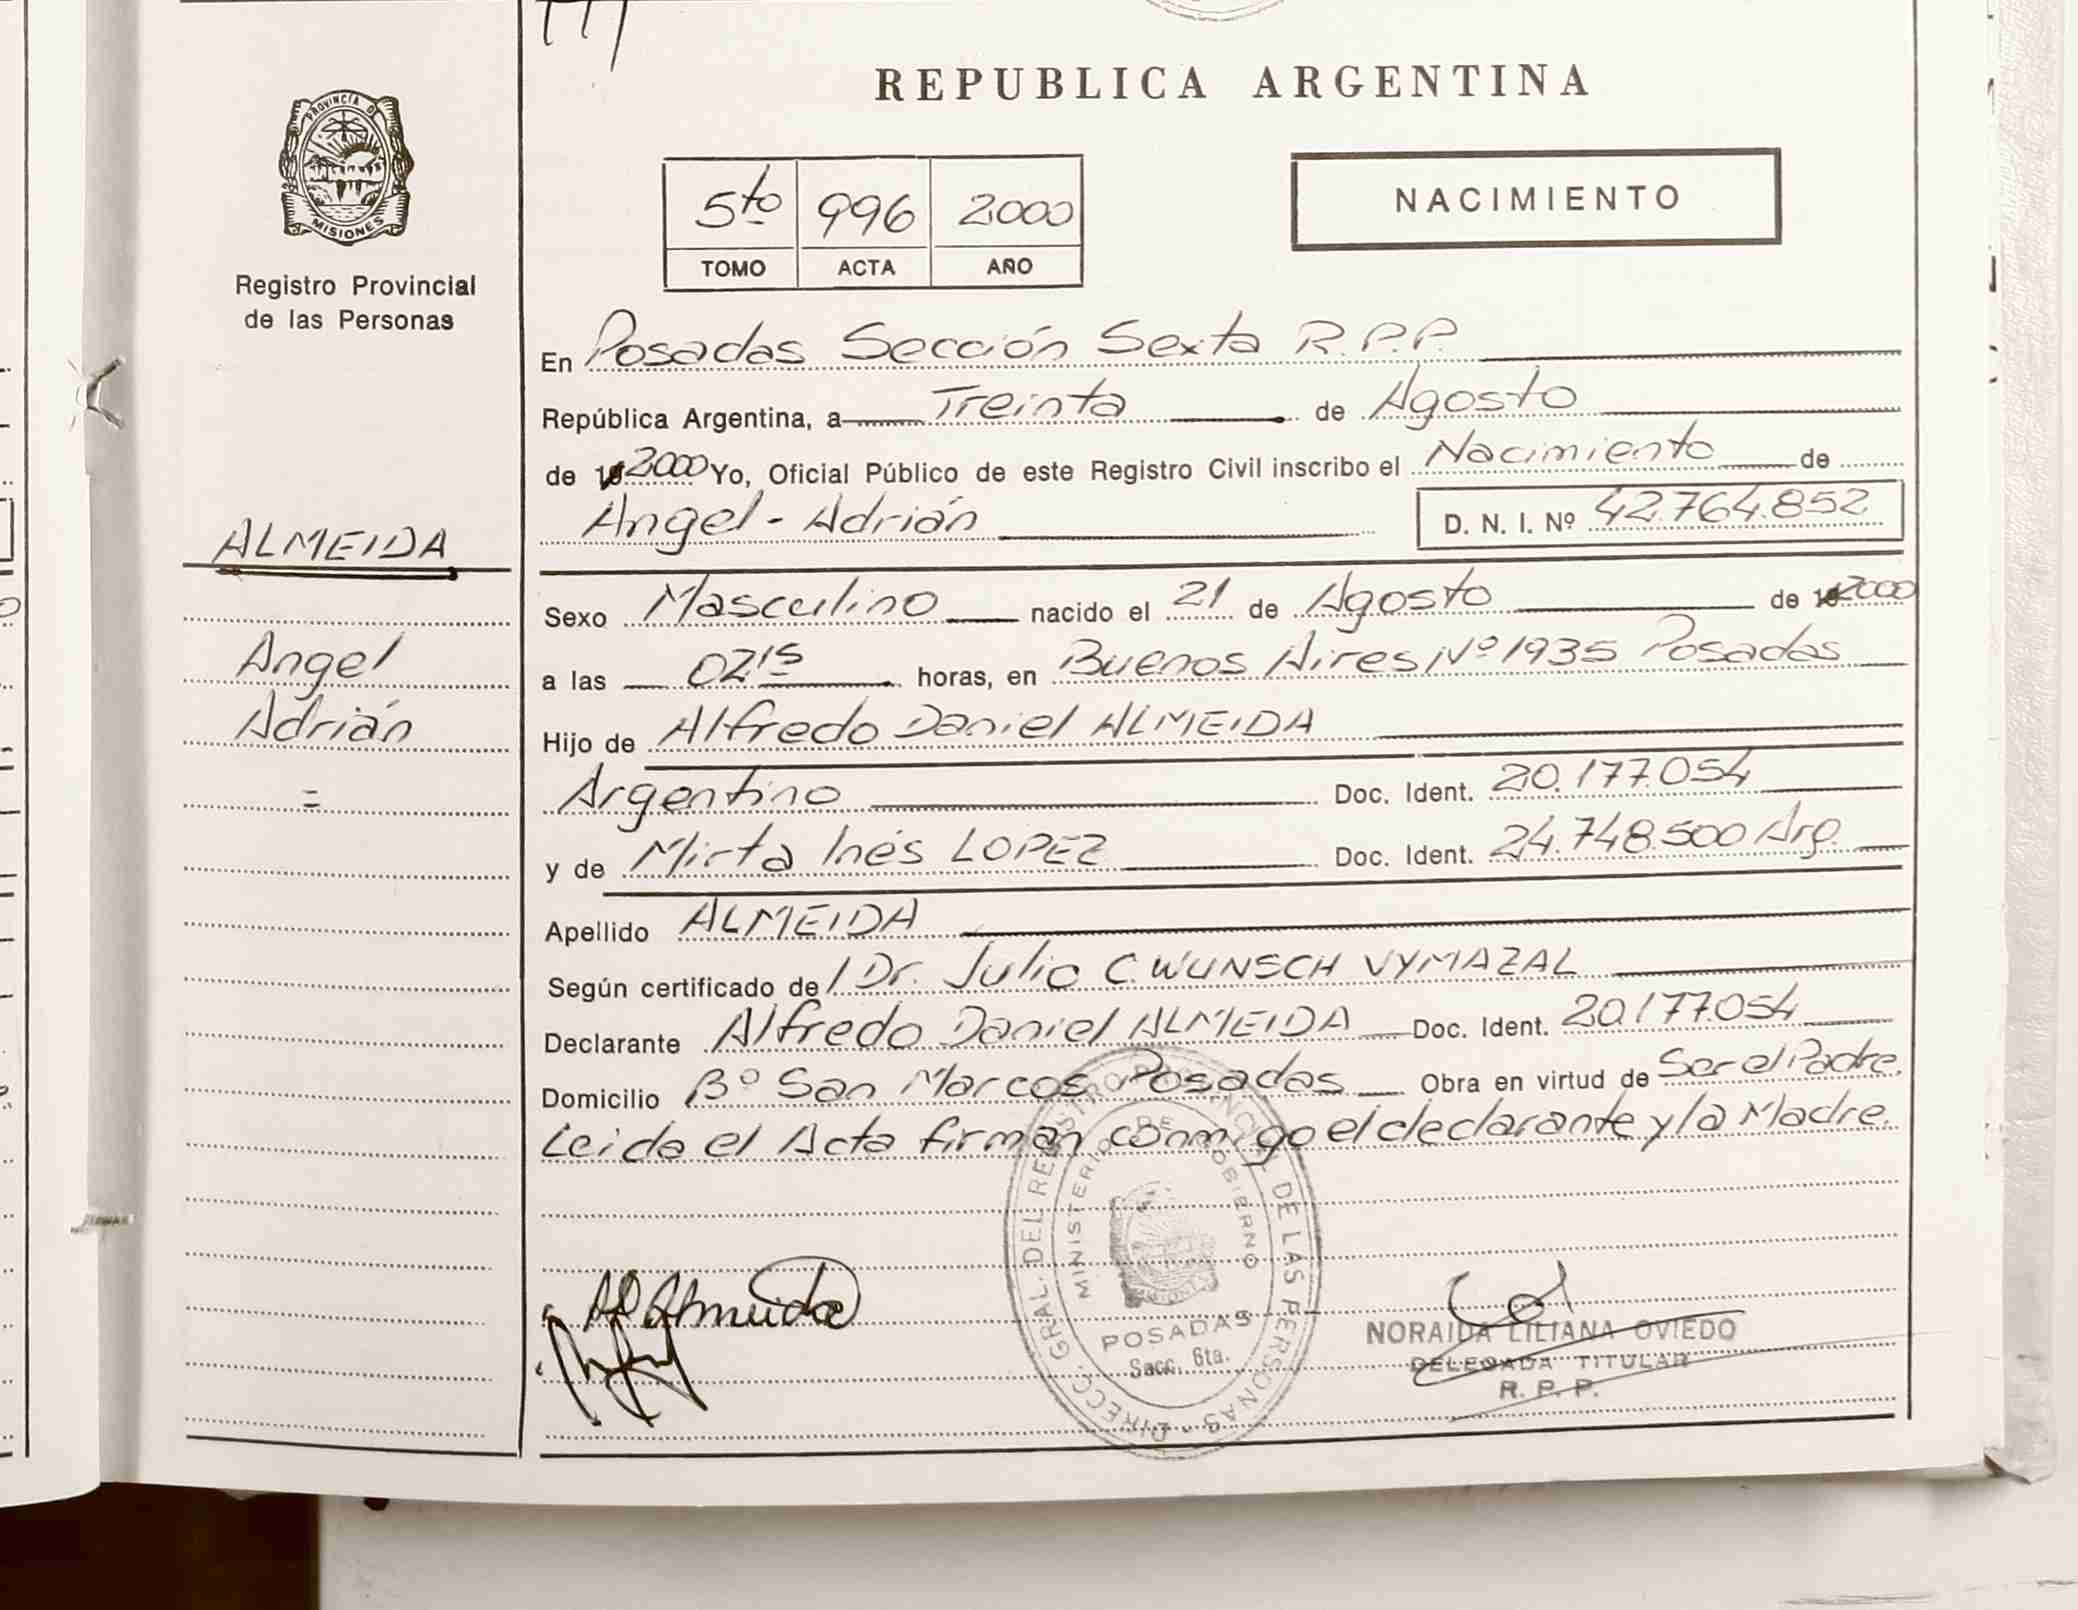 REPUBLICA ARGENTINA
PROVINCIA DE
MISIONES
Registro Provincial
de las Personas
5to 996 2000
TOMO ACTA AÑO
NACIMIENTO
En Posadas Sección Sexta R.P.P.
República Argentina, a Treinta de Agosto
de 2000 Yo, Oficial Público de este Registro Civil inscribo el Nacimiento de
Angel - Adrián D. N. I. Nº 42.764.852
ALMEIDA
Angel
Adrián
=
Sexo Masculino nacido el 21 de Agosto de 2000
a las 02,15 horas, en Buenos Aires Nº 1935 Posadas
Hijo de Alfredo Daniel ALMEIDA
Argentino Doc. Ident. 20.177.054
y de Mirta Inés LOPEZ Doc. Ident. 24.748.500 Arg.
Apellido ALMEIDA
Según certificado del Dr. Julio C. WUNSCH VYMAZAL
Declarante Alfredo Daniel ALMEIDA Doc. Ident. 20.177.054
Domicilio Bº San Marcos Posadas Obra en virtud de Ser el Padre.
Leida el Acta firman conmigo el declarante y la Madre.
DIRECC. GRAL. DEL REGISTRO PROVINCIAL DE LAS PERSONAS
MINISTERIO DE GOBIERNO
POSADAS
Secc. 6ta.
Almeida
NORAIDA LILIANA OVIEDO
DELEGADA TITULAR
R. P. P.